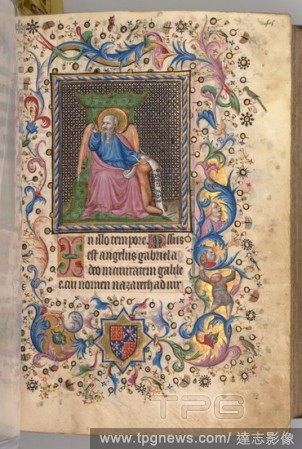 In illo tempore. Missus
est angelus gabriel a
deo in ciuitatem galile
e cui nomen nazareth ad uir
TPG
www.tpgnews.com/ 達志影像